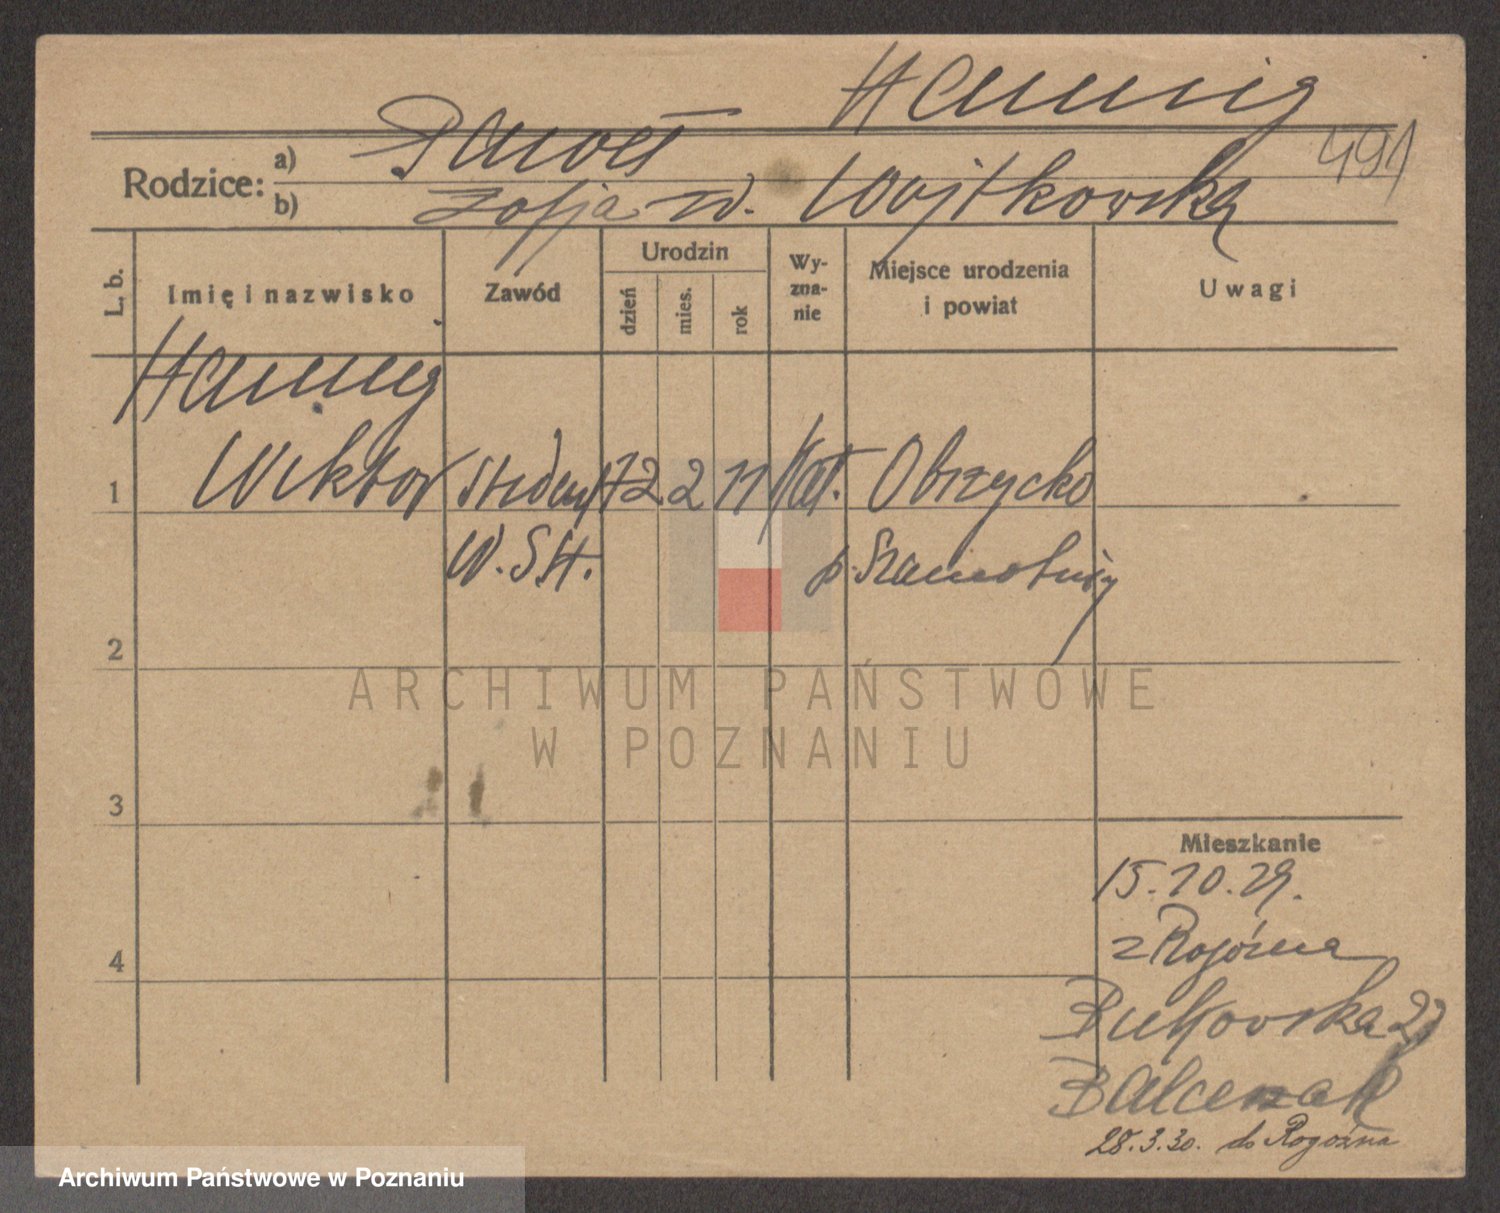 Hannig
491
Rodzice: a) Paweł
b) Zofja z d. Wojtkowska
L. b.
Imię i nazwisko
Zawód
Urodzin
dzień
mies.
rok
Wy-
zna-
nie
Miejsce urodzenia
i powiat
Uwagi
Hannig
1 Wiktor student 12 2 11 kat. Obrzycko
W.S.H. p. Szamotuły
2
3
4
Mieszkanie
15.10.29.
z Rogoźna
Bukowska
Balcerzak
28.3.30. do Rogoźna
ARCHIWUM PAŃSTWOWE
W POZNANIU
Archiwum Państwowe w Poznaniu